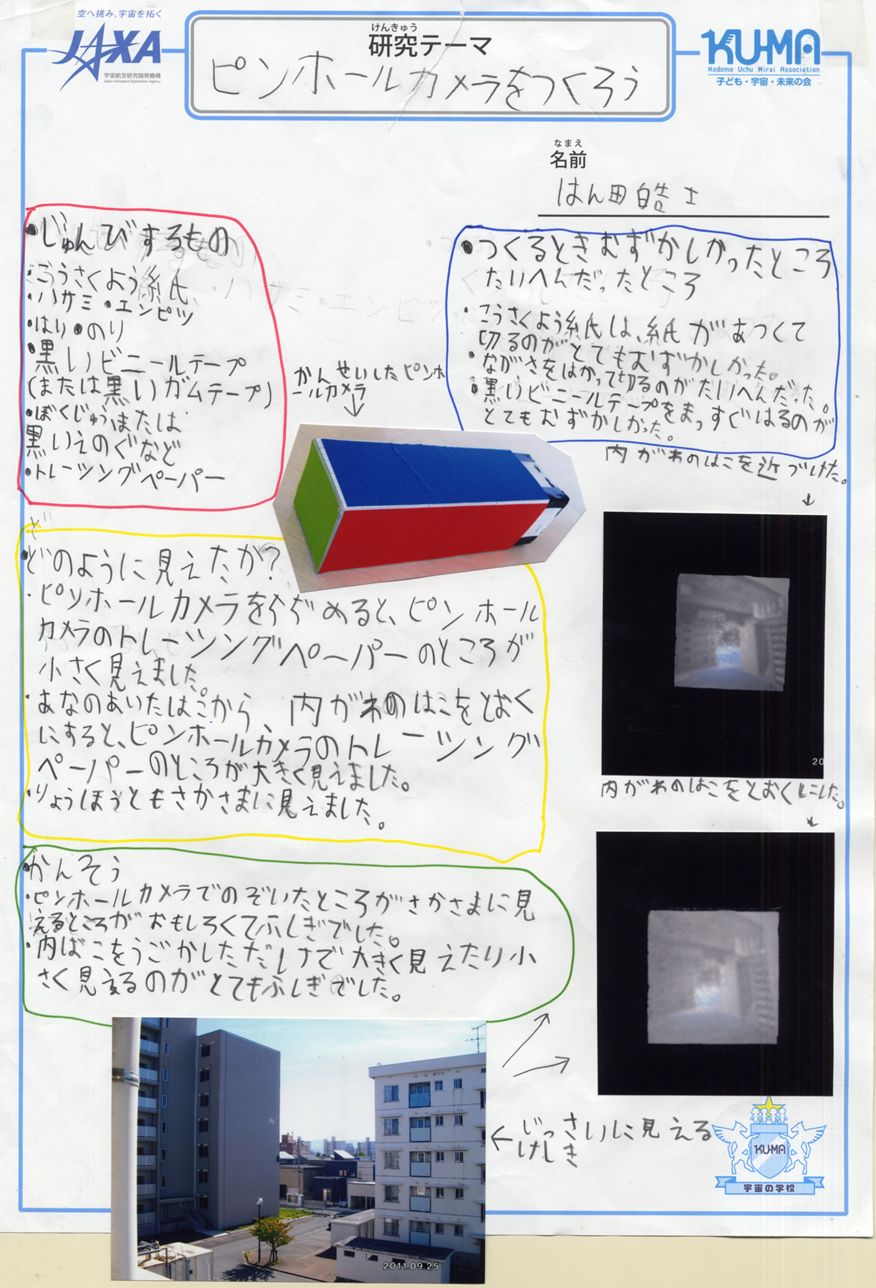 空へ挑み、宇宙を拓く
JAXA
宇宙航空研究開発機構
Japan Aerospace Exploration Agency
けんきゅう
研究テーマ
ピンホールカメラをつくろう
KU-MA
Kodomo Uchu Mirai Association
子ども・宇宙・未来の会
なまえ
名前
はん田皓士
・じゅんびするもの
・こうさくよう紙
・ハサミ・エンピツ
・はり・のり
・黒いビニールテープ
(または黒いガムテープ)
・ぼくじゅうまたは
黒いえのぐなど
・トレーシングペーパー
・つくるときむずかしかったところ
たいへんだったところ
・こうさくよう紙は、紙があつくて
切るのがとてもむずかしかった。
・ながさをはかって切るのがたいへんだった。
・黒いビニールテープをまっすぐはるのが
とてもむずかしかった。
かんせいしたピンホ
ールカメラ
内がわのはこを近づけた。
・どのように見えたか?
・ピンホールカメラをちぢめると、ピンホール
カメラのトレーシングペーパーのところが
小さく見えました。
・あなのあいたはこから、内がわのはこをとおく
にすると、ピンホールカメラのトレーシング
ペーパーのところが大きく見えました。
・りょうほうともさかさまに見えました。
20
内がわのはこをとおくにした。
・かんそう
・ピンホールカメラでのぞいたところがさかさまに見
えるところがおもしろくてふしぎでした。
・内ばこをうごかしただけで大きく見えたり小
さく見えるのがとてもふしぎでした。
じっさいに見える
けしき
2011.09.25
KU-MA
宇宙の学校